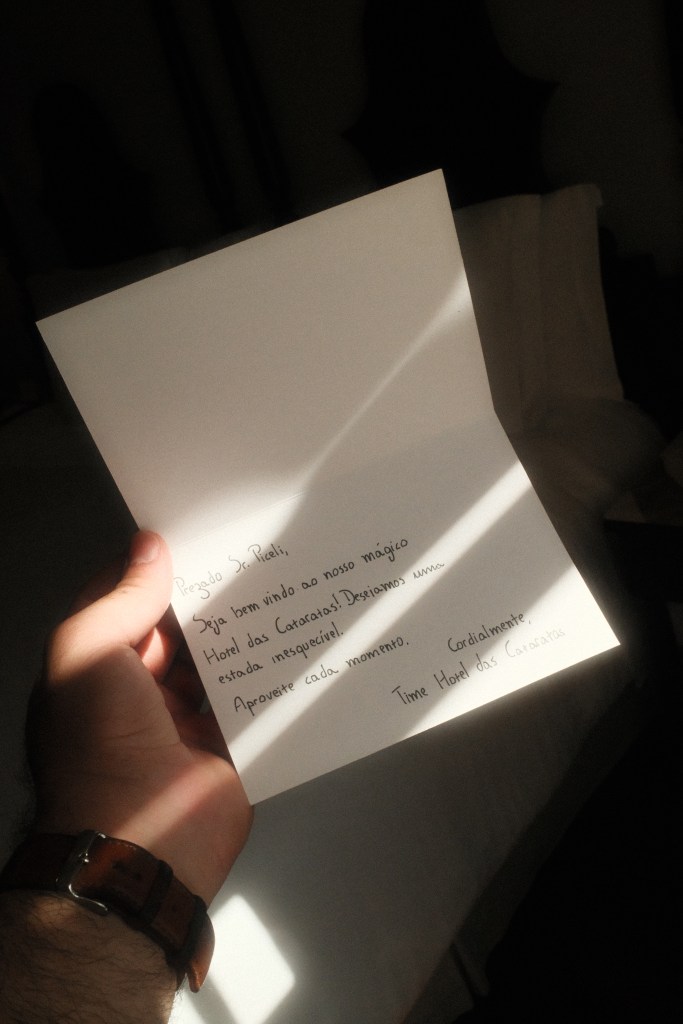 Prezado Sr. Piceli,
Seja bem vindo ao nosso mágico
Hotel das Cataratas! Desejamos uma
estada inesquecível.
Aproveite cada momento.
Cordialmente,
Time Hotel das Cataratas